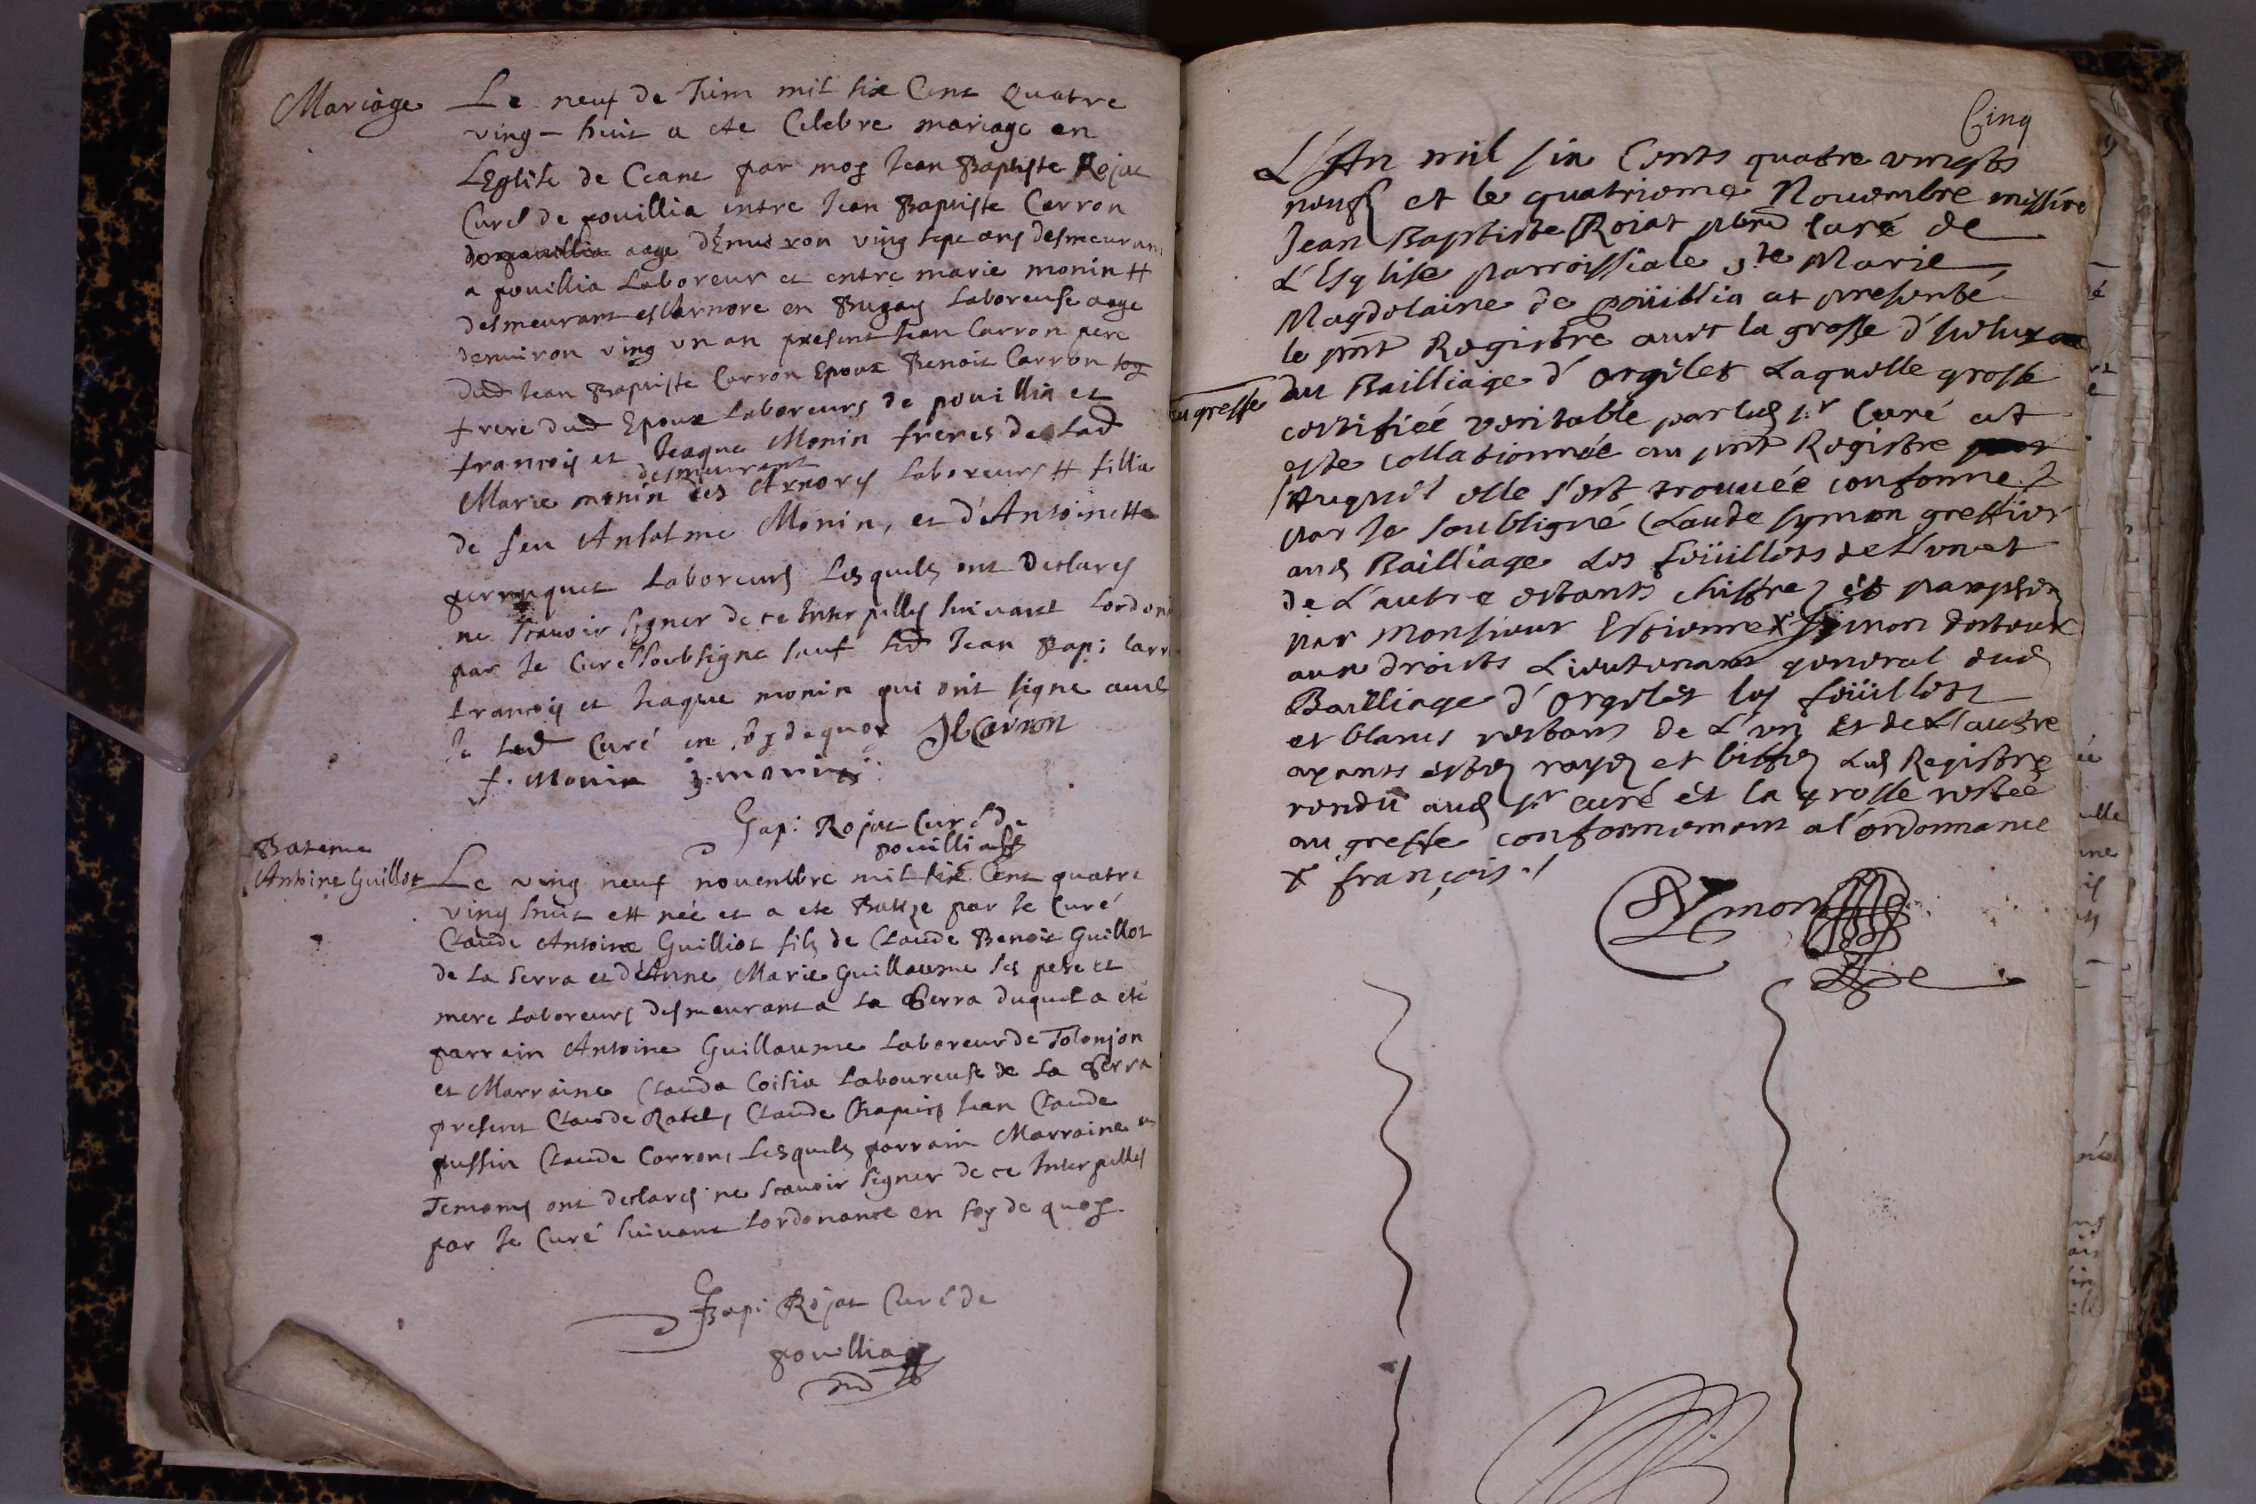 Mariage
Le neuf de Juin mil six Cent Quatre
ving-huit a ete Celebre mariage en
LEglise de Ceans par moy Jean Baptiste Rojat
Curé de pouillia entre Jean Baptiste Carron
aage dEnviron ving sept ans desmeurant
a pouillia Laboreur et entre marie monin #
desmeurant es Arnore en Bugay Laboreuse aage
denviron ving un an present Jean Carron pere
dud Jean Baptiste Carron Epoux Benoit Carron
frere dud Epoux Laboreurs de pouillia et
francois et Jeaque Monin freres de Lad
desmeurant
Marie monin es Arnorey Laboreurs # fillie
de feu Anselme Monin, et d'Antoinette
perruquet Laboreurs Lesquels ont Declarez
ne scavoir signer de ce Interpellez suivant Lordon
par le Curé soubsigne sauf led Jean Bapt Carr
francois et Jaque monin qui ont signe avec
le Led Curé en foy de quoy JbCarron
f. Monin j. monin
Bapt Rojat Curé de
pouillia
Bateme
Antoine Guillot
Le ving neuf novembre mil six Cent quatre
ving huit est née et a ete Batize par le Curé
Claude Antoine Guilliot fils de Claude Benoit Guillot
de La serra et d'Anne Marie Guillaume ses pere et
mere Laboreurs desmeurant a La Serra duquel a été
parrain Antoine Guillaume Laboreur de Tolonjon
et Marraine Clauda Coisia Laboureuse de La Serra
present Claude Ratel, Claude Chapuis Jean Claude
pussin Claude Carron, Lesquels parrain Marraine et
Temoins ont declarez ne scavoir signer de ce Interpellez
par le Curé suivant Lordonance en foy de quoy.
Bapt Rojat Curé de
pouillia
Cinq
L'An mil six Cents quatre vingts
neufz et le quatrieme Novembre missire
Jean Baptiste Roiat pbre Curé de
L'Esglise parroissiale ste Marie
Magdelaine de poüillia at presenté
le pnt Registre avec la grosse d'iceluy
au greffe
du Bailliage d'orgelet Laquelle grosse
certifiée veritable par led sr Curé at
este collationnée au pnt Registre
Auquel elle s'est trouvée conforme
par le soubsigné Claude symon greffier
aud Bailliage Les feüillets de L'un et
de L'autre estants chiffrez et paraphez
par Monsieur Estienne x Symon docteur
aux droicts Lieutenant general dud
Bailliage d'orgelet les feüillets
et blancs restans de L'un et de L'autre
ayants estez rayez et biffez Led Registre
rendu aud sr curé et la grosse restée
au greffe conformement a l'ordonnance
x françois
Symon